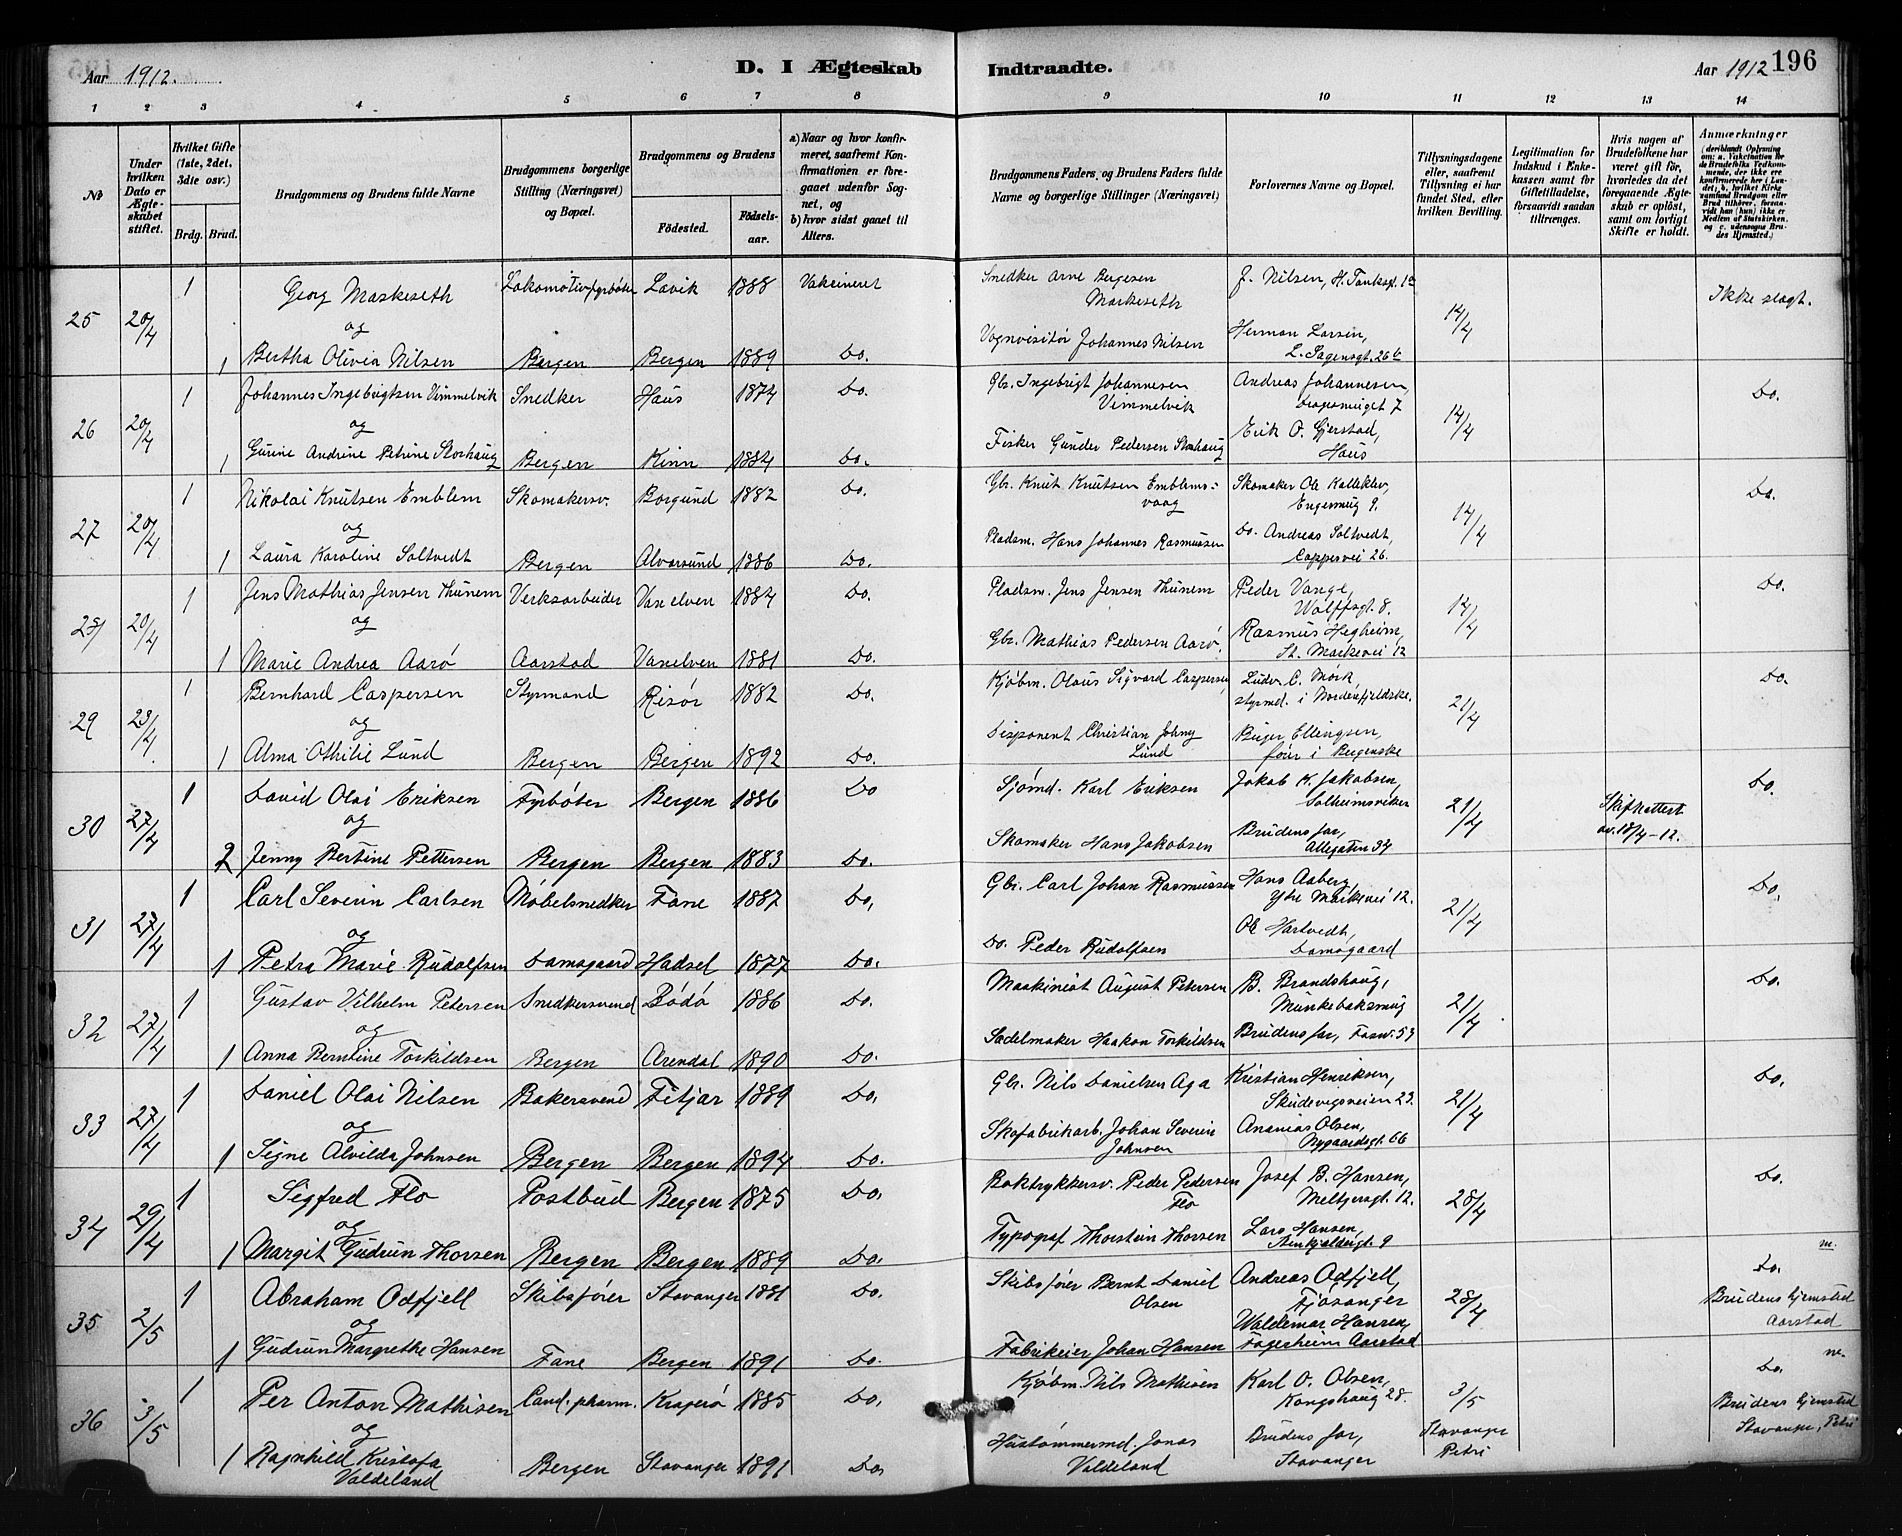 Aar 1912.
D. I Ægteskab
Indtraadte.
Aar 1912
196
1 2 3 4 5 6 7 8 9 10 11 12 13 14
No
Under hvilken Dato er Ægteskabet stiftet.
Hvilket Gifte (1ste, 2det, 3dte osv.)
Brdg. Brud.
Brudgommens og Brudens fulde Navne
Brudgommens borgerlige Stilling (Næringsvei) og Bopæl.
Brudgommens og Brudens
Fødested.
Fødselsaar.
a) Naar og hvor konfirmeret, saafremt Konfirmationen er foregaaet udenfor Sognet, og
b) hvor sidst gaaet til Alters.
Brudgommens Faders, og Brudens Faders fulde Navne og borgerlige Stillinger (Næringsvei)
Forlovernes Navne og Bopæl.
Tillysningsdagene eller, saafremt Tillysning ei har fundet Sted, efter hvilken Bevilling.
Legitimation for Indskud i Enkekassen samt for Giftetilladelse, forsaavidt saadan tiltrænges.
Hvis nogen af Brudefolkene har været gift før, hvorledes da det foregaaende Ægteskab er opløst, samt om lovligt Skifte er holdt.
Anmærkninger (deriblandt Oplysning om: a. Vakcination for de Brudefolks Vedkommende, der ikke ere konfirmerede her i Landet; b. hvilket Kirkesamfund Brudgom eller Brud tilhører, forsaavidt han (hun) ikke er Medlem af Statskirken, og c. udensogns Brudes Hjemsted.)
25 20/4 1 Georg Maskeseth Lokomotivfyrbøter Lavik 1888 Vakcineret Snedker Arne Bergesen Markeseth J. Nilsen, H. Tanksgt. 14/4 Ikke slægt.
og
1 Bertha Olivia Nilsen Bergen Bergen 1889 Do. Vognvisitør Johannes Nilsen Herman Larsen, L. Sagensgt. 26 b
26 20/4 1 Johannes Ingebrigtsen Vimmelvik Snedker Haus 1874 Do. Gbr. Ingebrigt Johannesen Vimmelvik Andreas Johannesen, 7 14/4 Do.
og
1 Gurine Andrine Petrine Storhaug Bergen Kinn 1884 Do. Fisker Gunder Pedersen Storhaug Erik O. Gjerstad, Haus
27 20/4 1 Nikolai Knutsen Emblem Skomakersv. Borgund 1882 Do. Gbr. Knut Knutsen Emblemsvaag Skomaker Ole Kalleklev, Engensmug 9. 14/4 Do.
og
1 Laura Karoline Soltvedt Bergen Alversund 1886 Do. Pladsm. Hans Johannes Rasmussen Do. Andreas Soltvedt, Cappesvei 26.
28 20/4 1 Jens Mathias Jensen Thunem Verksarbeider Vanelven 1884 Do. Pladsm. Jens Jensen Thunem Peder Vange, Wolffsgt. 8. 14/4 Do.
og
1 Marie Andrea Aarø Aarstad Vanelven 1881 Do. Gbr. Mathias Pedersen Aarø. Rasmus Hegheim, St. Markevei 12
29 23/4 1 Bernhard Caspersen Styrmand Risør 1882 Do. Kjøbm. Olaus Sigvard Caspersen Luder C. Mørk, styrmd. i Nordenfjeldske. 21/4 Do.
og
1 Alma Othilie Lund Bergen Bergen 1892 Do. Disponent Christian Johny Lund Birger Ellingsen, fører i Bergenske
30 27/4 1 David Olai Eriksen Fyrbøter Bergen 1886 Do Sjømd. Karl Eriksen Jakob K. Jakobsen, Solheimsviken 21/4 Skifteattest av 18/4-12. Do.
og
2 Jenny Bertine Pettersen Bergen Bergen 1883 Do. Skomaker Hans Jakobsen Brudens far, Allegaten 34
31 27/4 1 Carl Severin Carlsen Møbelsnedker Fane 1887 Do. Gbr. Carl Johan Rasmussen Hans Aaberg, Ytre Markevei 12. 21/4 Do.
og
1 Petra Marie Rudolfsen Damsgaard Hadsel 1877 Do. Do. Peder Rudolfsen Ole Hartvedt, Damsgaard
32 27/4 1 Gustav Vilhelm Petersen Snedkersvend Bodø 1886 Do. Maskinist August Petersen B. Brandshaug, Munkebæksmug 21/4 Do.
og
1 Anna Berntine Torkildsen Bergen Arendal 1890 Do. Sadelmaker Haakon Torkildsen Brudens far, Fosw. 53
33 27/4 1 Daniel Olai Nilsen Bakersvend Fitjar 1889 Do. Gbr. Nils Danielsen Aga Kristian Henriksen, Skudevigsveien 23. 21/4 Do.
og
1 Signe Alvilda Johnsen Bergen Bergen 1894 Do. Skofabrikarb. Johan Severin Johnsen Ananias Olsen, Nygaardsgt. 66
34 29/4 1 Sigfred Flo Postbud Bergen 1875 Do. Boktrykkersv. Peder Pedersen Flo Josef B. Hansen, Meltzersgt. 12. 28/4 Do.
og
1 Margit Gudrun Thorsen Bergen Bergen 1889 Do. Typograf Thorstein Thorsen Lars Hansen, Stenkjeldersgt. 9
35 2/5 1 Abraham Odfjell Skibsfører Stavanger 1881 Do. Skibsfører Bernt Daniel Olsen Andreas Odfjell, Fjøsanger 28/4 m. Do. Brudens hjemsted Aarstad
og
1 Gudrun Margrethe Hansen Fane Bergen 1891 Do. Fabrikeier Johan Hansen Waldemar Hansen, Fagerheim Aarstad
36 3/5 1 Per Anton Mathisen Cand. pharm. Kragerø 1885 Do. Kjøbm. Nils Mathisen Karl O. Olsen, Kongshaug 28. 3/5 Stavanger Petri m. Do. Brudens hjemsted Stavanger, Petri
og
1 Ragnhild Kristofa Valdeland Bergen Stavanger 1891 Do. Hustømmermd. Jonas Valdeland Brudens far, Stavanger